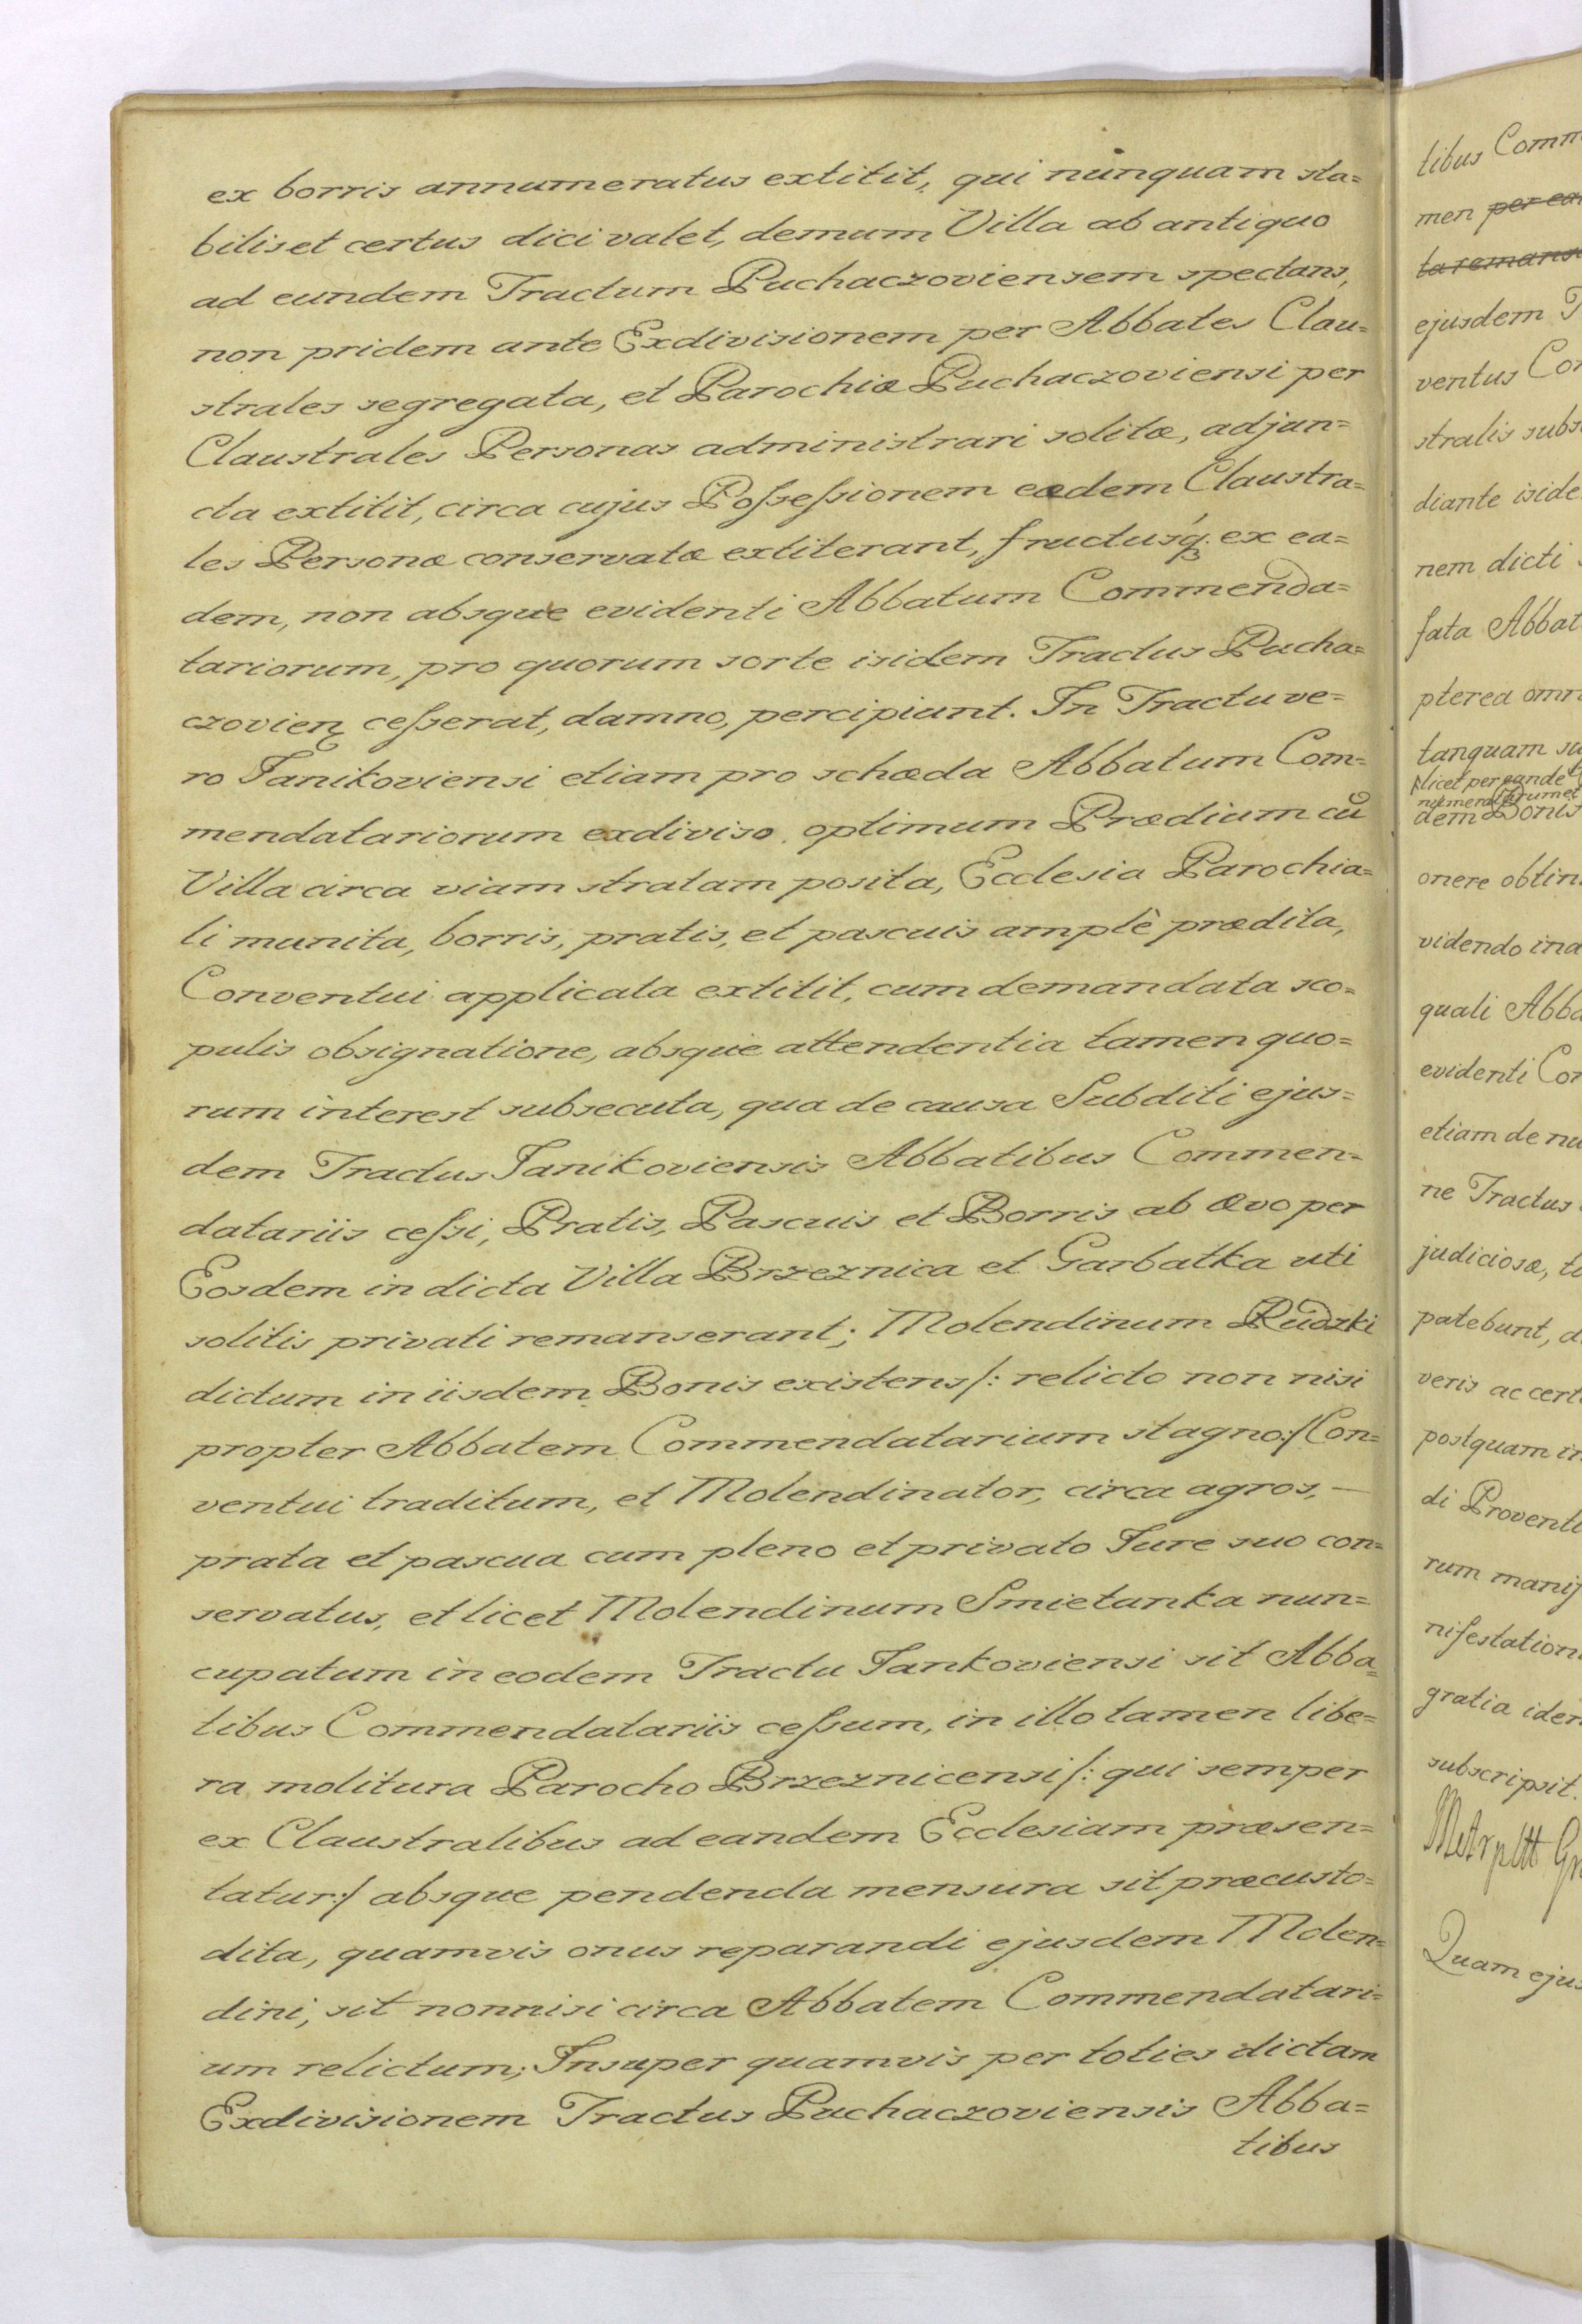 ex borris annumeratus extitit, qui nunquam sta=
bilis et certus dici valet, demum Villa ab antiquo
ad eundem Tractum Puchaczoviensem spectans,
non pridem ante Exdivisionem per Abbates Clau=
strales segregata, et Parochiæ Puchaczoviensi per
Claustrales Personas administrari solitæ, adjun=
cta extitit, circa cujus Poſseſsionem eædem Claustra=
les Personæ conservatæ extiterant, fructusq́; ex ea=
dem, non absque evidenti Abbatum Commenda=
tariorum, pro quorum sorte isidem Tractus Pucha=
czovien ceſserat, damno, percipiunt. In Tractu ve=
ro Janikoviensi etiam pro schæda Abbatum Com=
mendatariorum exdiviso, optimum Prædium cū
Villa circa viam stratam posita, Ecclesia Parochia=
li munita, borris, pratis, et pascuis amplè prædita,
Conventui applicata extitit, cum demandata sco=
pulis obsignatione, absque attendentia tamen quo=
rum interest subsecuta, qua de causa Subditi ejus=
dem Tractus Janikoviensis Abbatibus Commen=
datariis ceſsi, Pratis, Pascuis et Borris ab ævo per
Eosdem in dicta Villa Brzeznica et Garbatka uti
solitis privati remanserant; Molendinum Rudzki
dictum in iisdem Bonis existens /: relicto non nisi
propter Abbatem Commendatarium stagno:/ Con=
ventui traditum, et Molendinator, circa agros, —
prata et pascua cum pleno et privato Jure suo con=
servatus, et licet Molendinum Smietanka nun=
cupatum in eodem Tractu Jankoviensi sit Abba=
tibus Commendatariis ceſsum, in illo tamen libe=
ra molitura Parocho Brzeznicensi /: qui semper
ex Claustralibus ad eandem Ecclesiam præsen=
tatur:/ absque pendenda mensura sit præcusto=
dita, quamvis onus reparandi ejusdem Molen=
dini, sit nonnisi circa Abbatem Commendatari=
um relictum; Insuper quamvis per toties dictam
Exdivisionem Tractus Puchaczoviensis Abba=
tibus
tibus Comm
men per ea
ta remans
ejusdem T
ventus Co
stralis subs
diante iside
nem dicti
fata Abbat
pterea omn
tanquam su
licet per eande
dem Bonis
onere obtin
videndo ina
quali Abba
evidenti Con
etiam de nu
ne Tractus
judiciosæ, t
patebunt, d
veris ac cert
postquam in
di Provent
rum manif
nifestation
gratia iden
subscripsit.
Quam ejus